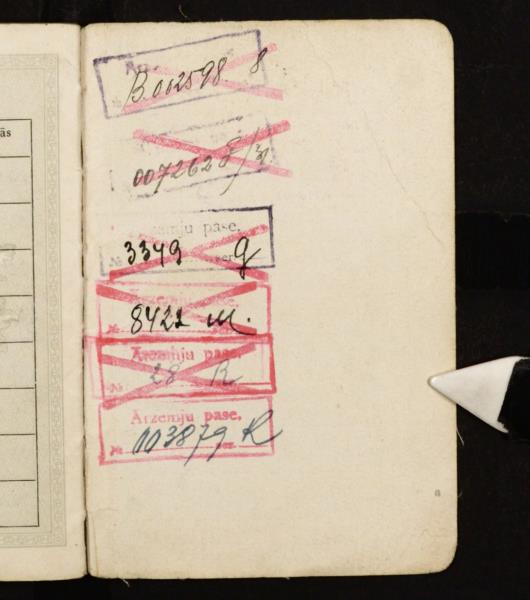 ās
№ B.002598 8
007262
Ārzemju pase.
№ 3349 ser. g
№ 8422 M.
Ārzemju pase.
№ 28 R
Ārzemju pase.
№ 003879 R